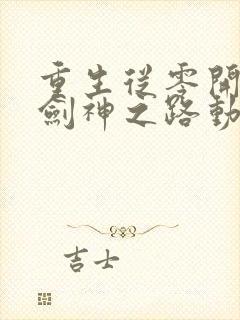 重生從零開
劍神之路動
吉士